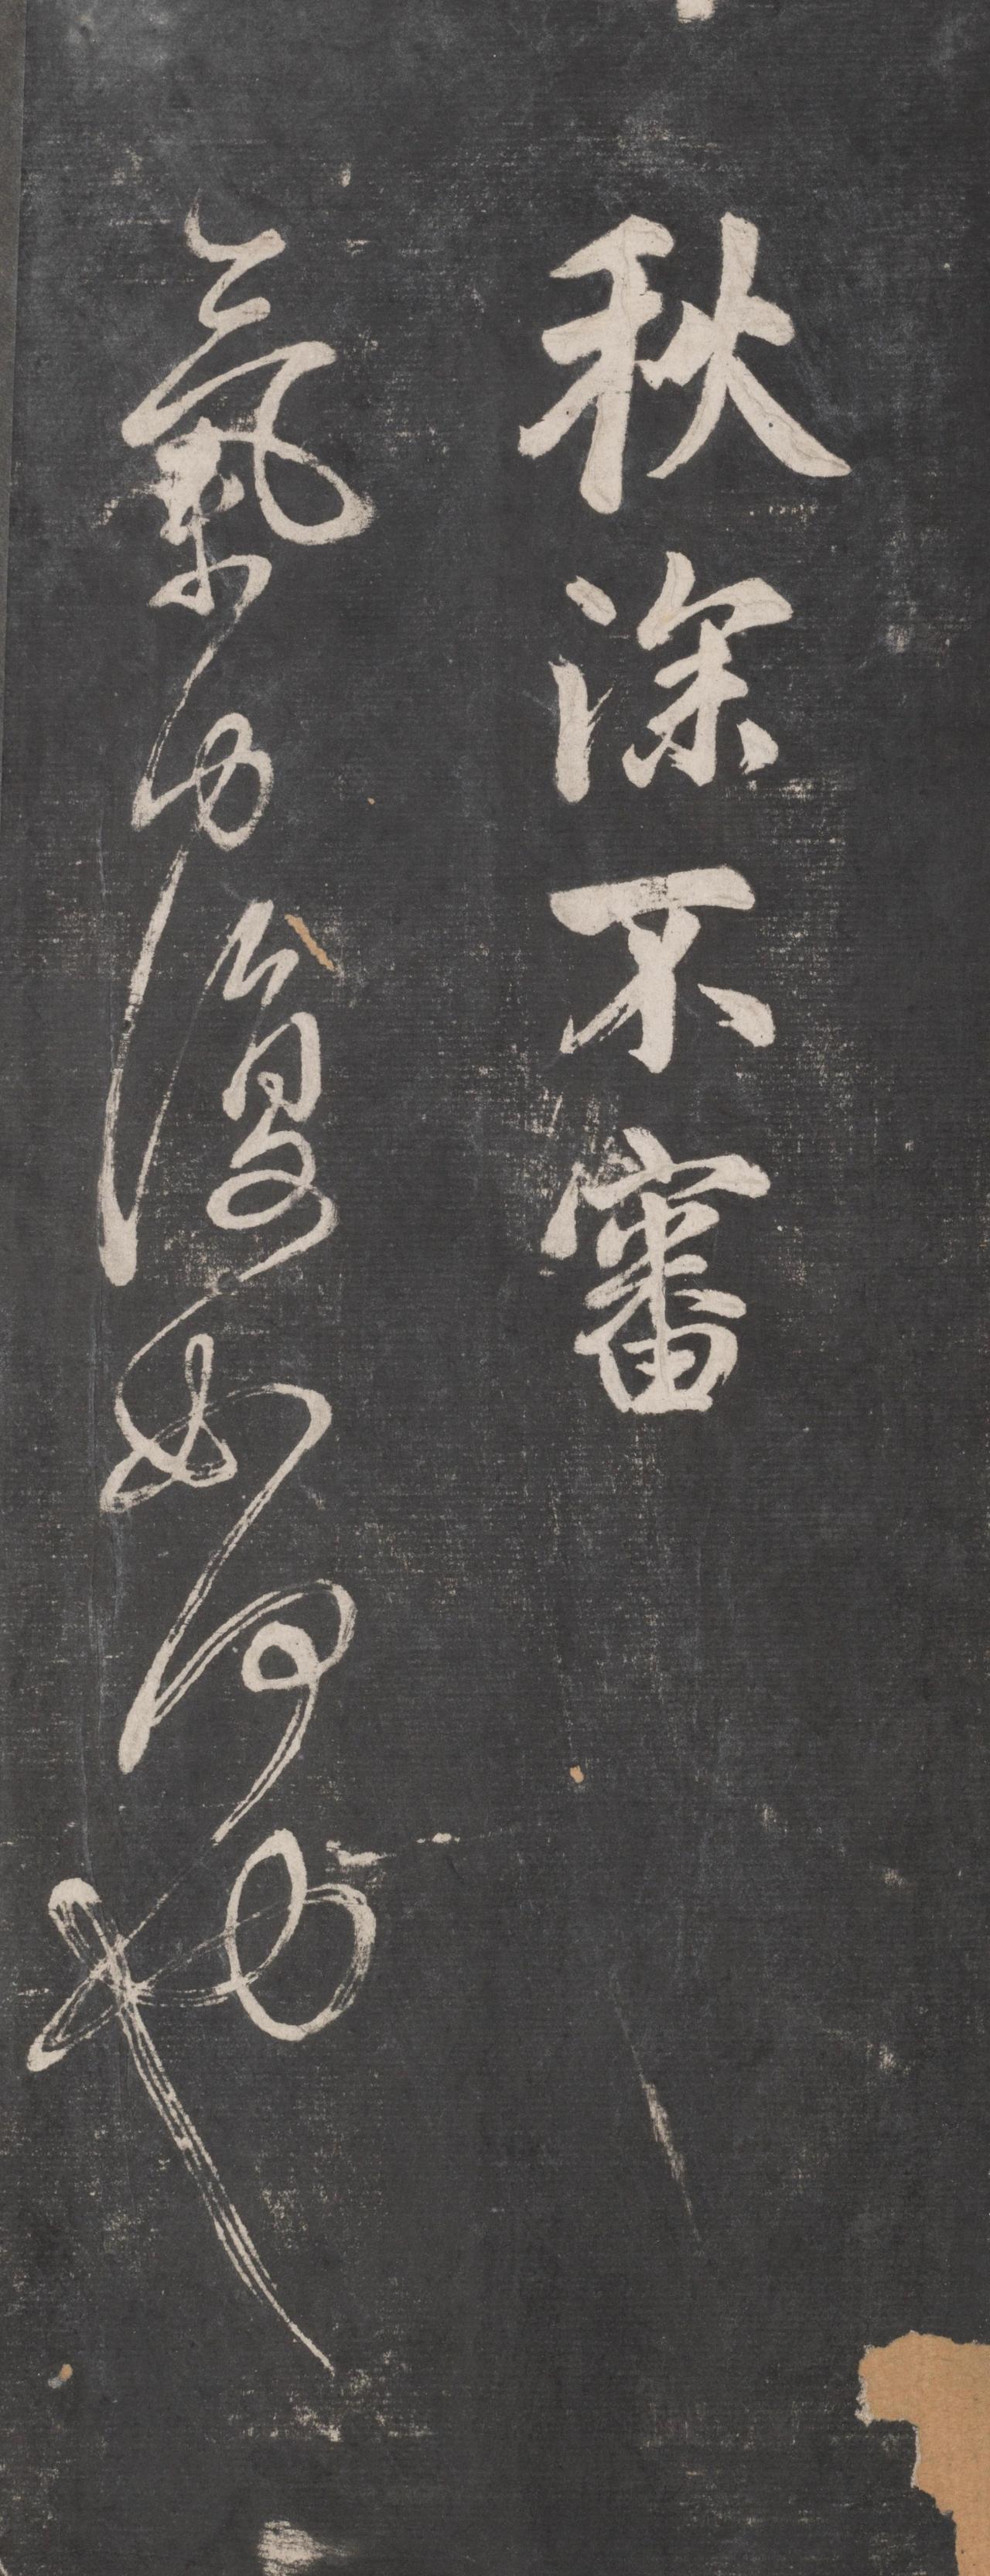 秋深不審
氣力復如何也